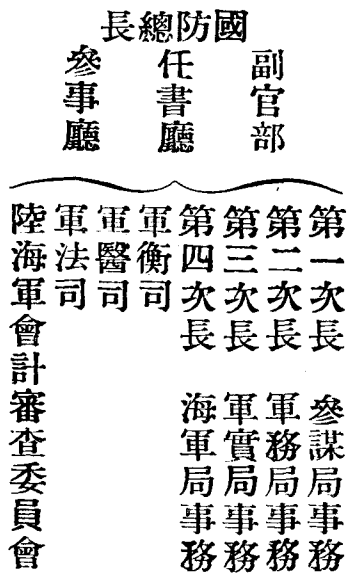 國防總長
副官部
任書廳
參事廳
第一次長 參謀局事務
第二次長 軍務局事務
第三次長 軍實局事務
第四次長 海軍局事務
軍衡司
軍醫司
軍法司
陸海軍會計審查委員會